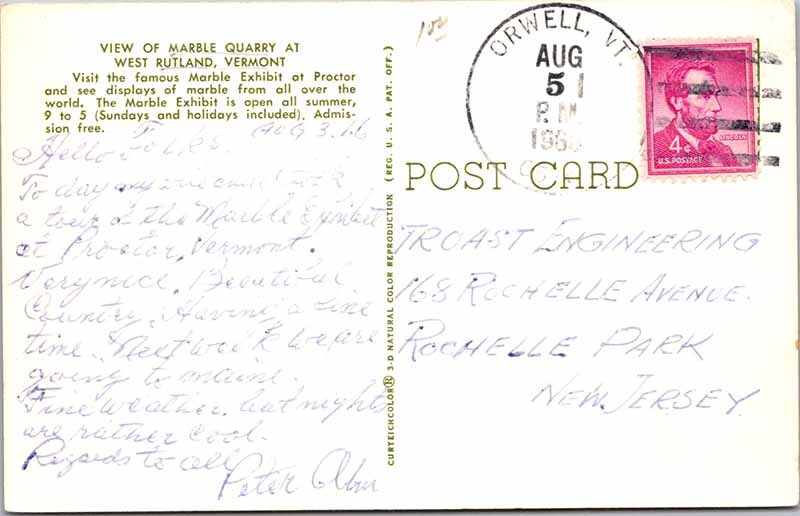 VIEW OF MARBLE QUARRY AT
WEST RUTLAND, VERMONT
Visit the famous Marble Exhibit at Proctor
and see displays of marble from all over the
world. The Marble Exhibit is open all summer,
9 to 5 (Sundays and holidays included). Admis-
sion free.
AUG 3. 66
Hello Folks.
To day my wife and I took
a tour of the Marble Exhibit
at Proctor, Vermont.
Very nice. Beautiful
Country. Having a fine
time. Next week we are
going to maine.
Fine weather, but nights
are rather cool.
Regards to all
Peter
CURTEICHCOLOR® 3-D NATURAL COLOR REPRODUCTION (REG. U.S.A. PAT. OFF.)
ORWELL, VT.
AUG
5
P.M.
LINCOLN
4¢
U.S. POSTAGE
POST CARD
TROAST ENGINEERING
168 ROCHELLE AVENUE.
ROCHELLE PARK
NEW JERSEY.